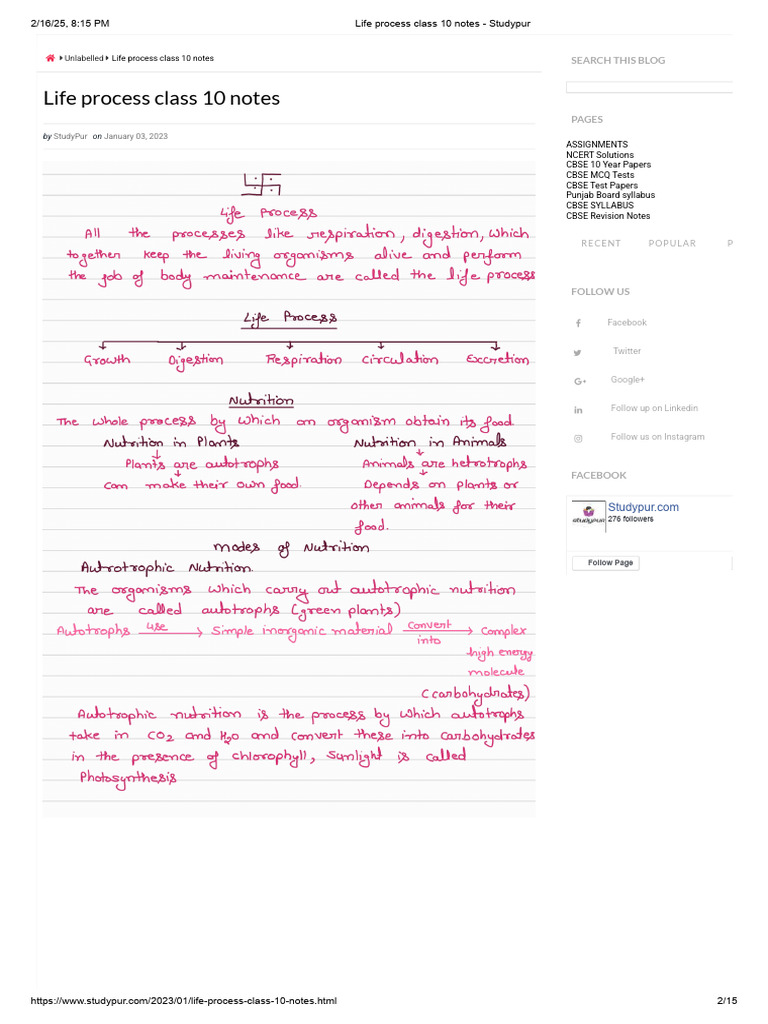 2/16/25, 8:15 PM
Life process class 10 notes - Studypur
Unlabelled Life process class 10 notes
Life process class 10 notes
by StudyPur on January 03, 2023
Life Process
All the processes like respiration, digestion, which
together keep the living organisms alive and perform
the job of body maintenance are called the life process
Life Process
Growth Digestion Respiration Circulation Excretion
Nutrition
The whole process by which an organism obtain its food
Nutrition in Plants
Plants are autotrophs
can make their own food.
Nutrition in Animals
Animals are hetrotrophs
Depends on plants or
other animals for their
food.
modes of Nutrition
Autrotrophic Nutrition.
The organisms which carry out autotrophic nutrition
are called autotrophs (green plants)
Autotrophs use Simple inorganic material convert into Complex
high energy
molecule
(carbohydrates)
Autotrophic nutrition is the process by which autotrophs
take in CO2 and H2O and convert these into carbohydrates
in the presence of chlorophyll, sunlight is called
Photosynthesis
SEARCH THIS BLOG
PAGES
ASSIGNMENTS
NCERT Solutions
CBSE 10 Year Papers
CBSE MCQ Tests
CBSE Test Papers
Punjab Board syllabus
CBSE SYLLABUS
CBSE Revision Notes
RECENT POPULAR P
FOLLOW US
Facebook
Twitter
Google+
Follow up on Linkedin
Follow us on Instagram
FACEBOOK
studypur
Studypur.com
276 followers
Follow Page
https://www.studypur.com/2023/01/life-process-class-10-notes.html
2/15